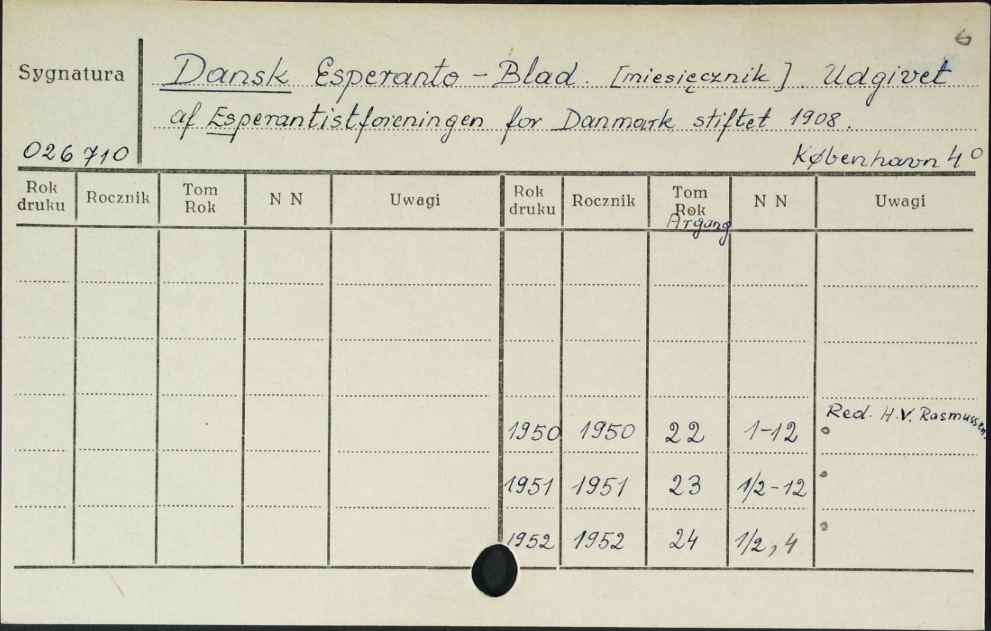 6
Sygnatura
Dansk Esperanto - Blad. [miesięcznik]. Udgivet
af Esperantistforeningen for Danmark stiftet 1908.
026 710
København 4°
Rok druku Rocznik Tom Rok N N Uwagi Rok druku Rocznik Tom Rok Argang N N Uwagi
Red. H.V. Rasmussen.
1950 1950 22 1-12 °
1951 1951 23 1/2-12 °
1952 1952 24 1/2, 4 °